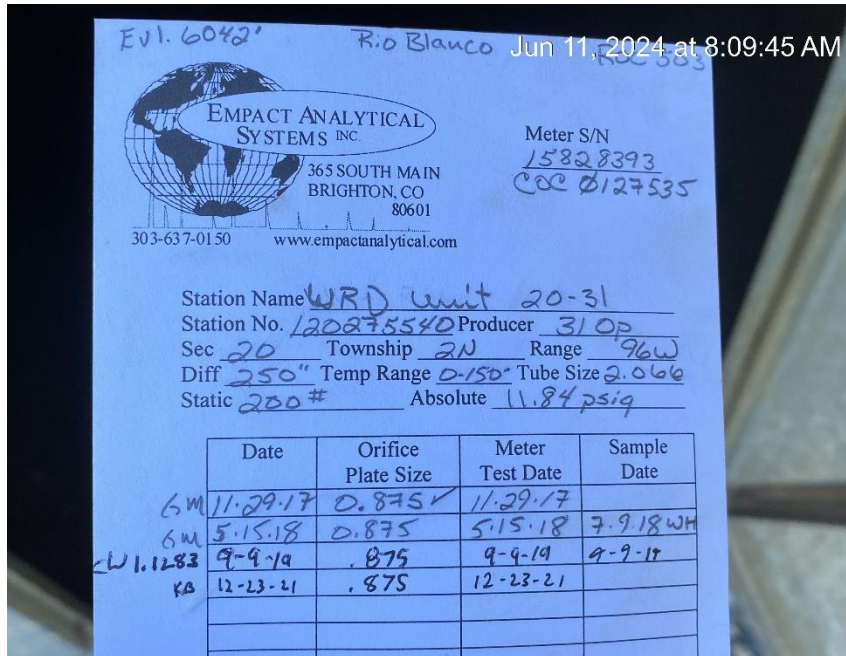 Evl. 6042' Rio Blanco
Jun 11, 2024 at 8:09:45 AM
EMPACT ANALYTICAL
SYSTEMS INC.
365 SOUTH MAIN
BRIGHTON, CO
80601
303-637-0150 www.empactanalytical.com
Meter S/N
15828393
COC Ø127535
Station Name WRD Unit 20-31
Station No. 120275540 Producer 31 Op
Sec 20 Township 2N Range 96W
Diff 250" Temp Range 0-150° Tube Size 2.066
Static 200# Absolute 11.84 psig
Date Orifice Plate Size Meter Test Date Sample Date
GM 11.29.17 0.875✓ 11.29.17
GM 5.15.18 0.875 5.15.18 7.9.18 WH
1.1283 9-9-19 .875 9-9-19 9-9-19
KB 12-23-21 .875 12-23-21